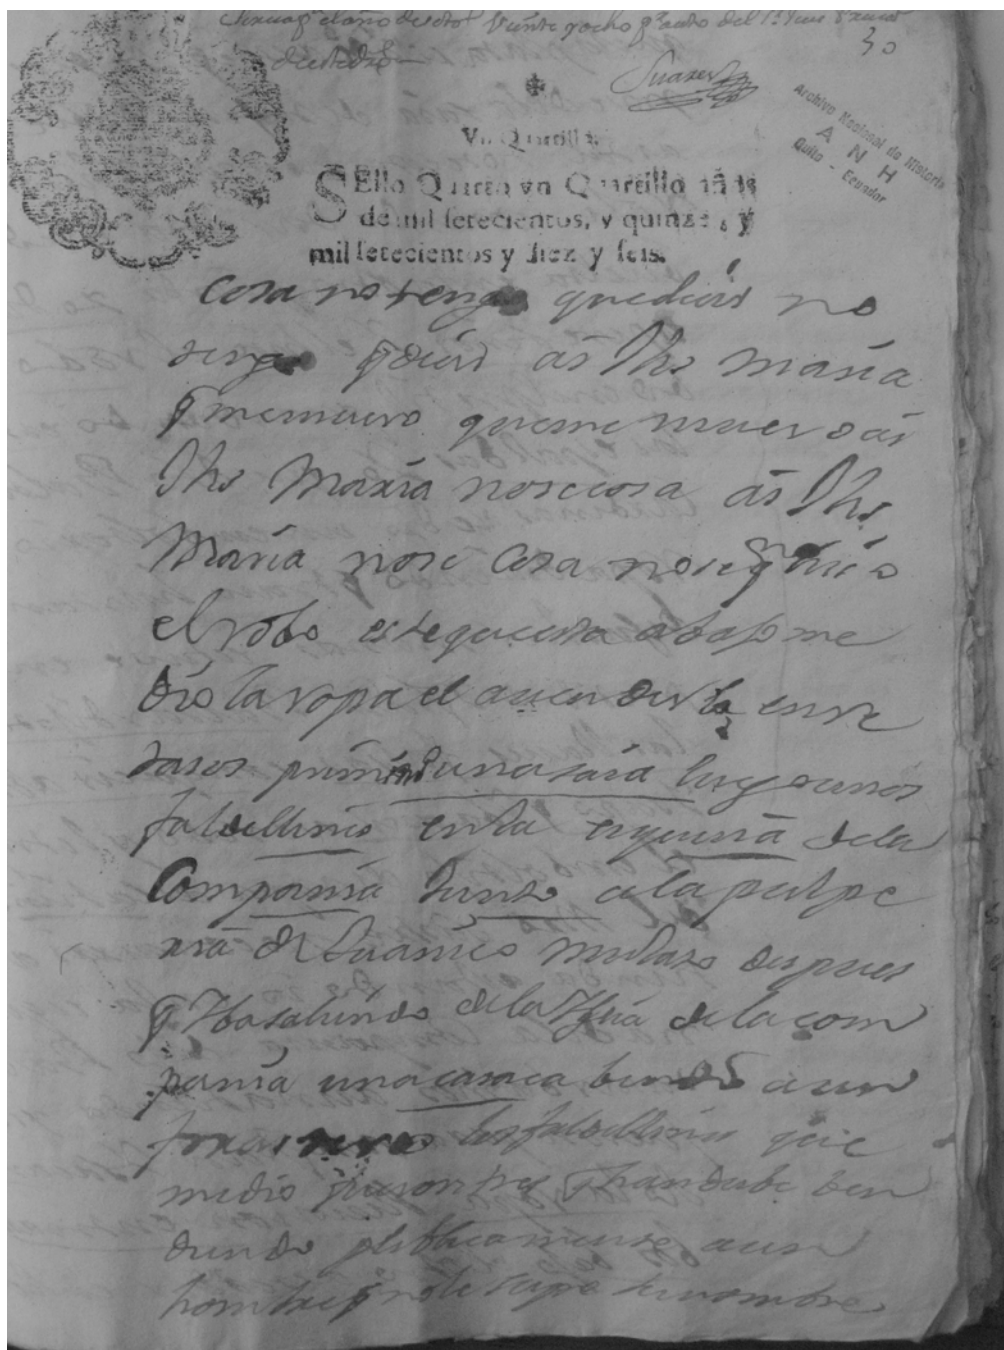 el año de
30
Suares
Archivo Nacional de Historia
A N H
Quito - Ecuador
Vn Quartillo.
SEllo Quarto vn Quartillo años
de mil setecientos, y quinze, y
mil setecientos y diez y seis.
cosa no tengo que desir no
tengo q desir ai Jhs maria
q me muero que me muero ai
Jhs Maria no se cosa ai Jhs
Maria no se cosa no se quien
el robo este que esta abaxo me
dio la ropa el a bender la entre
una saia luego unos
faldellines en la esquina de la
Compania Junto a la pulpe
ria de mulato despues
q Yba saliendo de la Yglesia de la com
pania una casaca bendio a un
forastero los faldellines que
me dio fueron tres q handube ben
diendo publicamente a un
hombre q no le supe su nombre